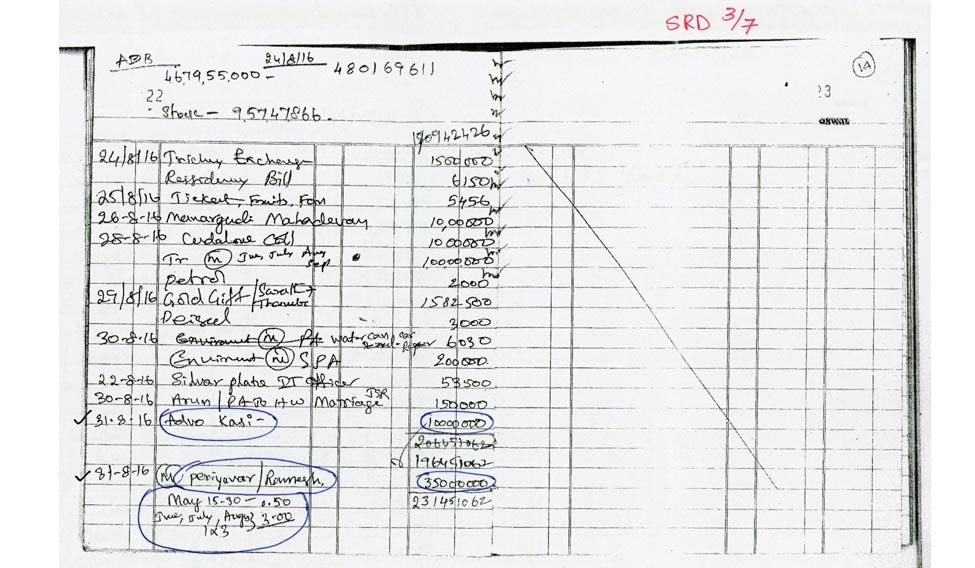 SRD 3/7
14
ADB 24/8/16
4679,55,000 - 480169611
22 23
Store - 9,5747866.
OSWAL
190942426
24/8/16 Trichy Exchange 1500000
Ressidency Bill 6150
25/8/16 Ticket, Fruits, Fan 5456
26-8-16 Mannargudi Mahadevan 10,00000
28-8-16 Cuddalore Coll 1000000
Tr (M) Jue, July Aug Sep 10000000
petrol 2000
29/8/16 Gold Gift / Sarath + 1582500
Deisel 3000
30-8-16 Enviroment (M) PA water can, car 6030
Enviroment (M) S PA 200000
22-8-16 Silver plate DT officer 53500
30-8-16 Arun / PA to H.W Marriage JSR 150000
31-8-16 Advo Kasi - 10000000
206451062
196451062
31-8-16 (M) periyavar / Ramesh 35000000
May 15-30 - 0.50 231451062
Jue, July, August 3.00
1 2 3